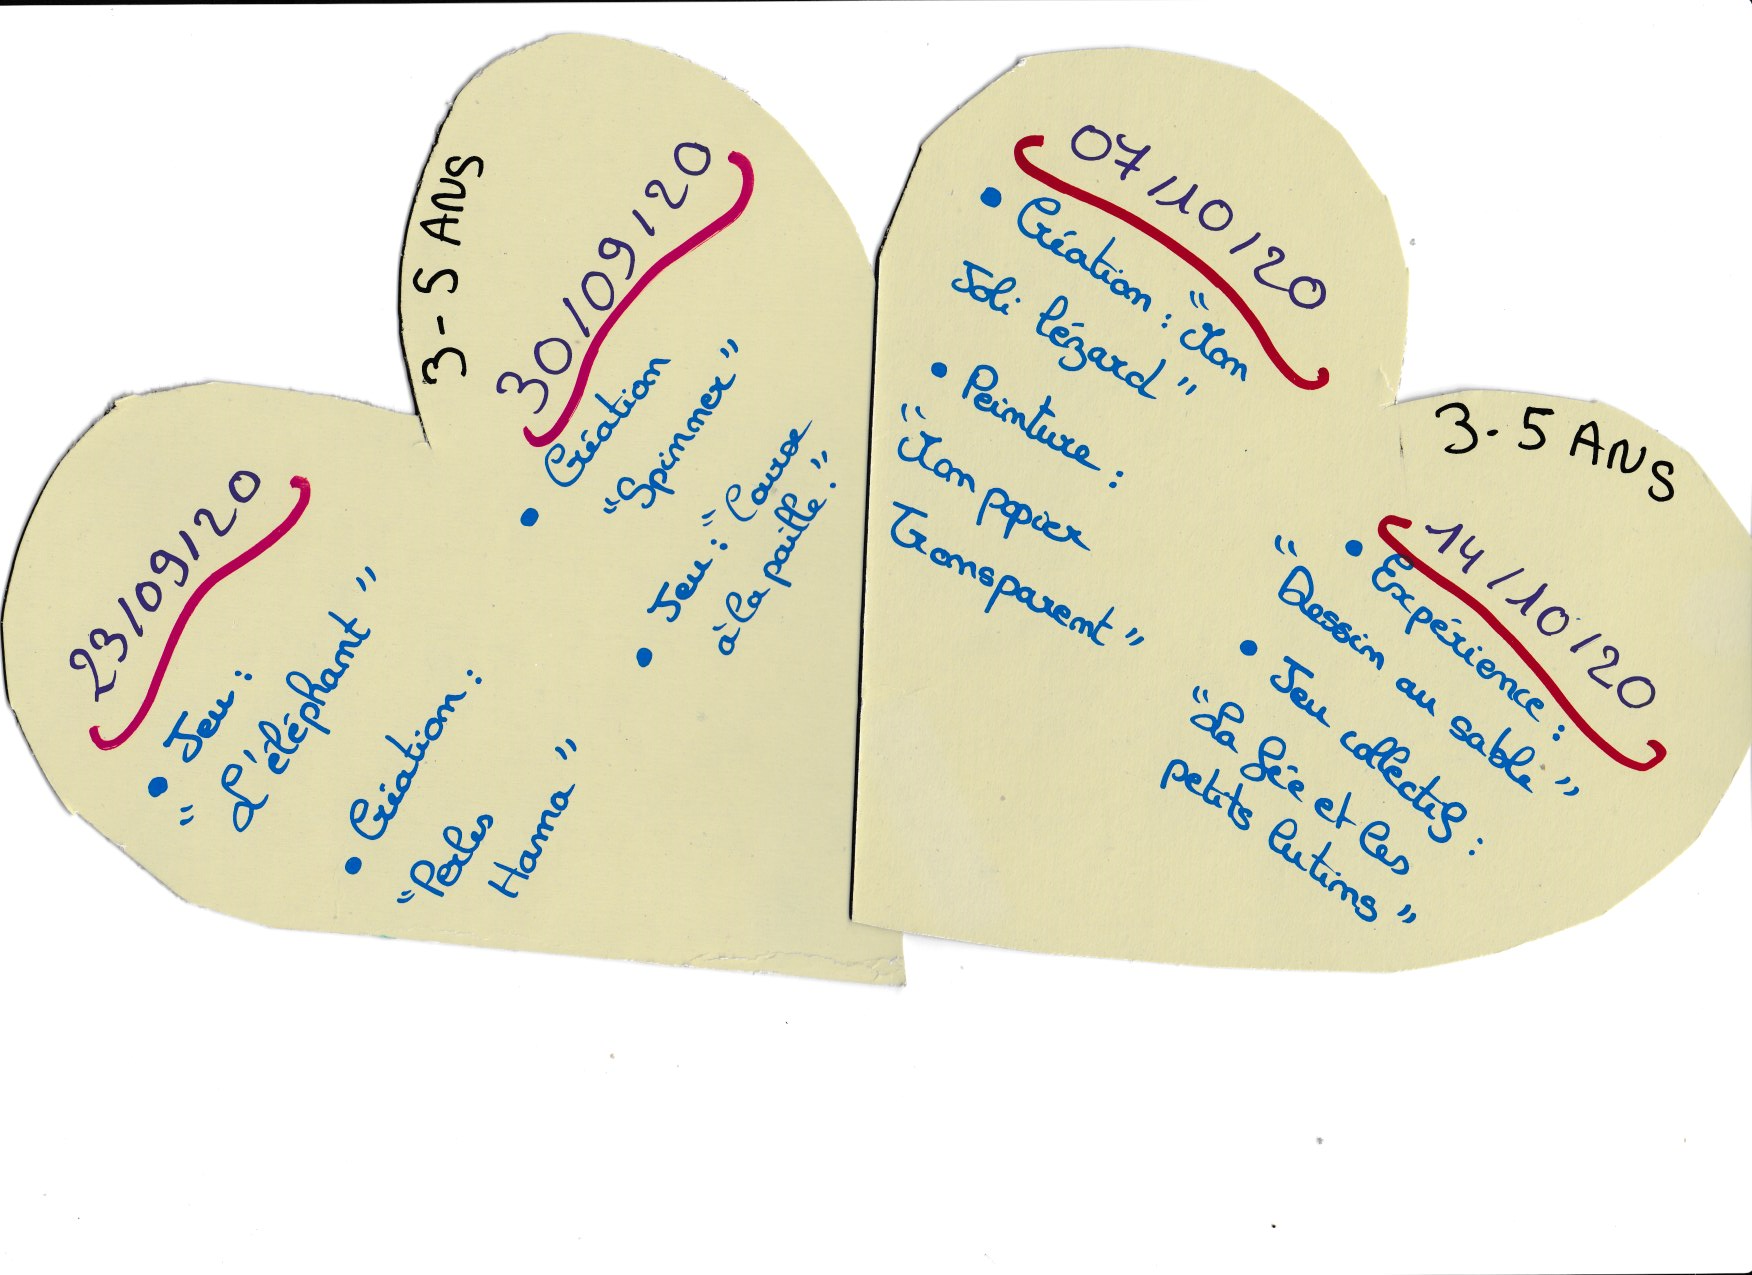 3-5 ANS
23/09/20
• Jeu :
"L'éléphant"
• Création :
"Perles
Hama"
30/09/20
• Création
"Spinner"
• Jeu : "Course
à la paille."
07/10/20
• Création : "Mon
Joli lézard"
• Peinture :
"Mon papier
Transparent"
3-5 ANS
14/10/20
• Expérience :
"Dessin au sable"
• Jeu collectif :
"La fée et les
petits lutins"